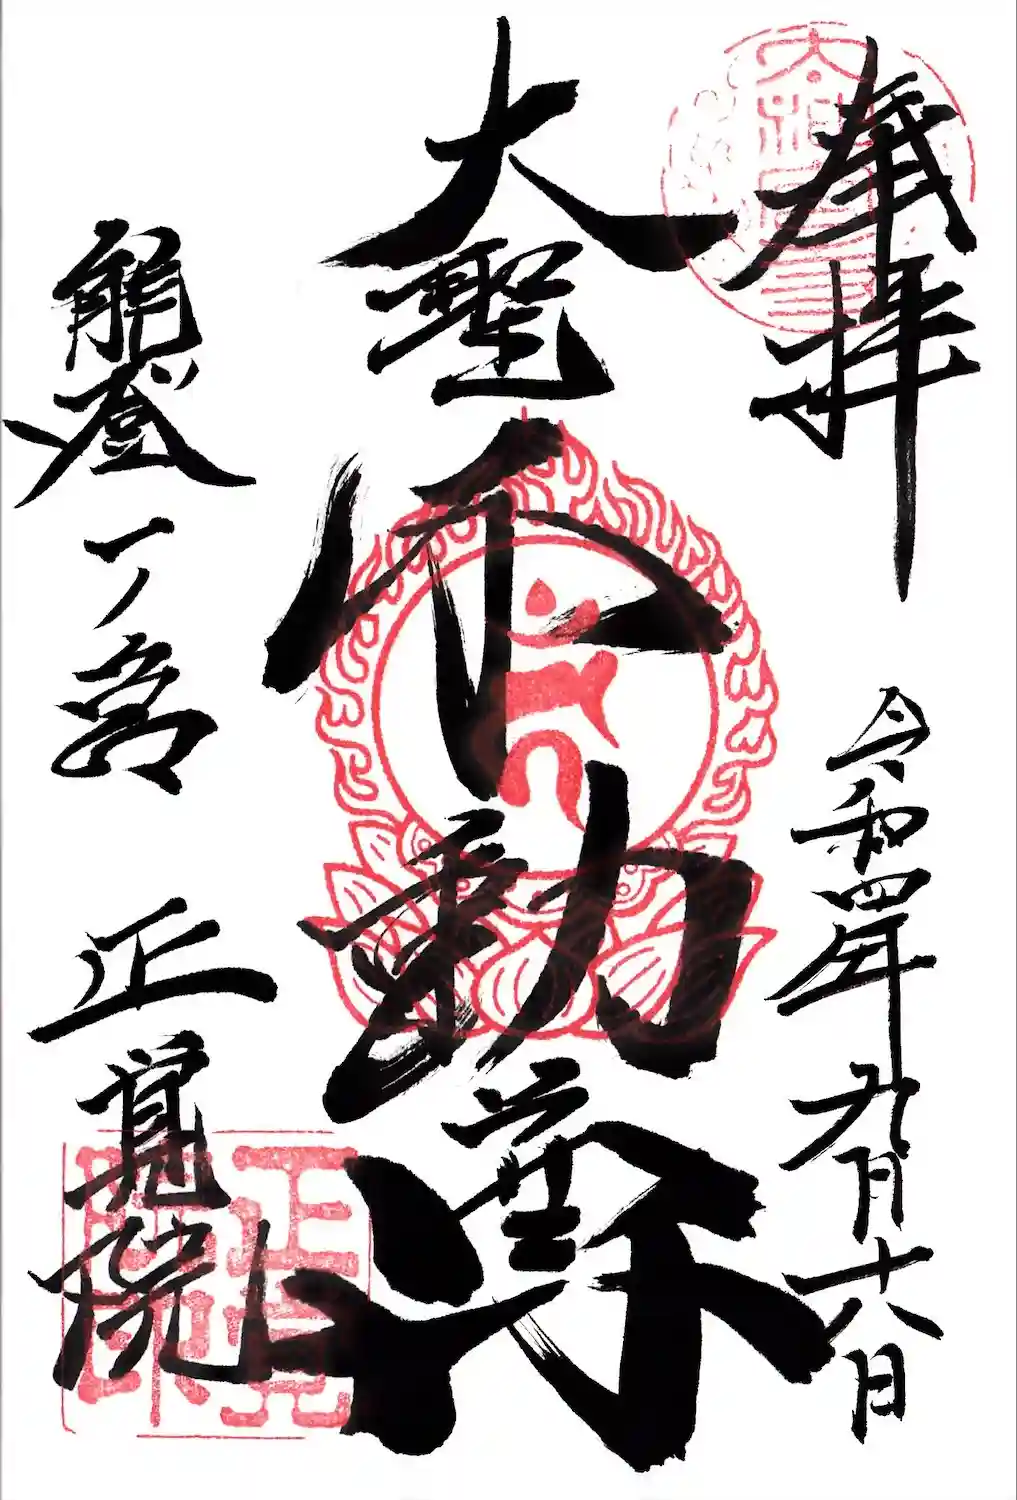 奉拝
令和四年九月十八日
大聖不動尊
能登一ノ宮 正覚院